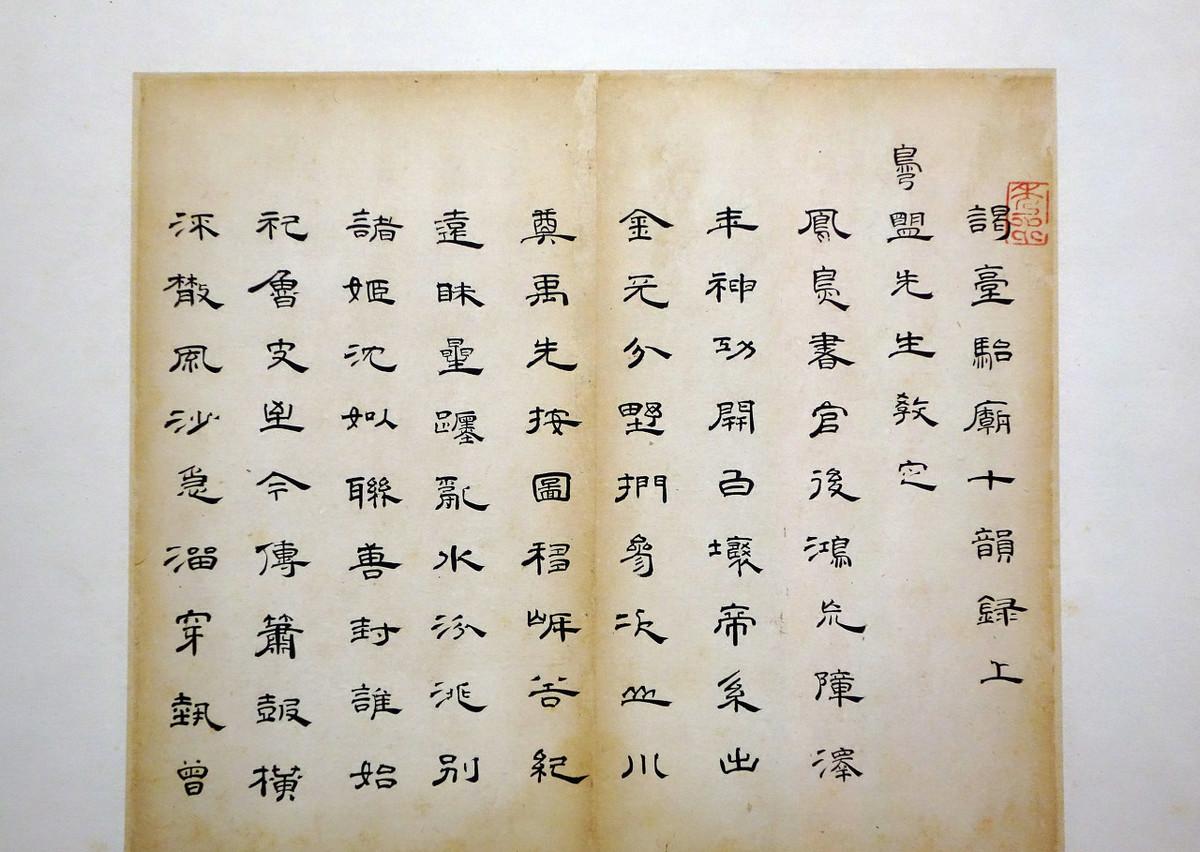 謁臺駘廟十韻録上
鳧盟先生教定
鳳鳥書官後鴻巟障澤
年神功開白壤帝系出
金天分野捫參次山川
奠禹先按圖移岸谷紀
遠昧星躔亂水汾洮別
諸姬沈姒聯善封誰始
祀魯史至今傳簫鼓橫
散風沙急溜穿曾